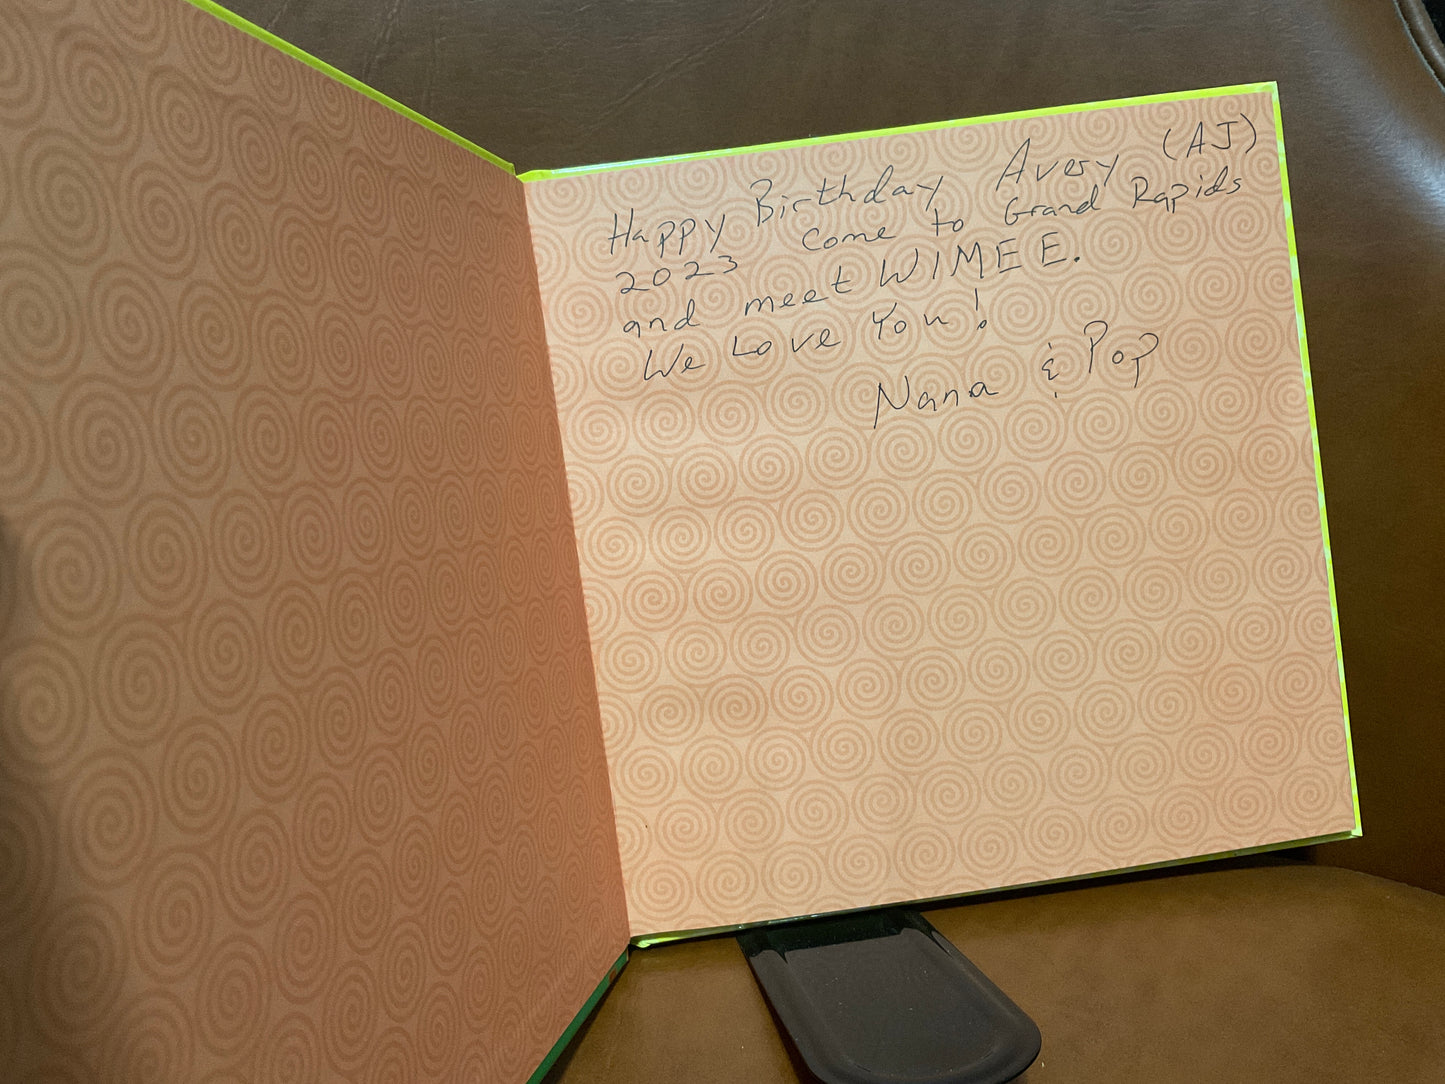 Happy Birthday Avery (AJ)
2023 come to Grand Rapids
and meet WIMEE.
We Love You!
Nana & Pop